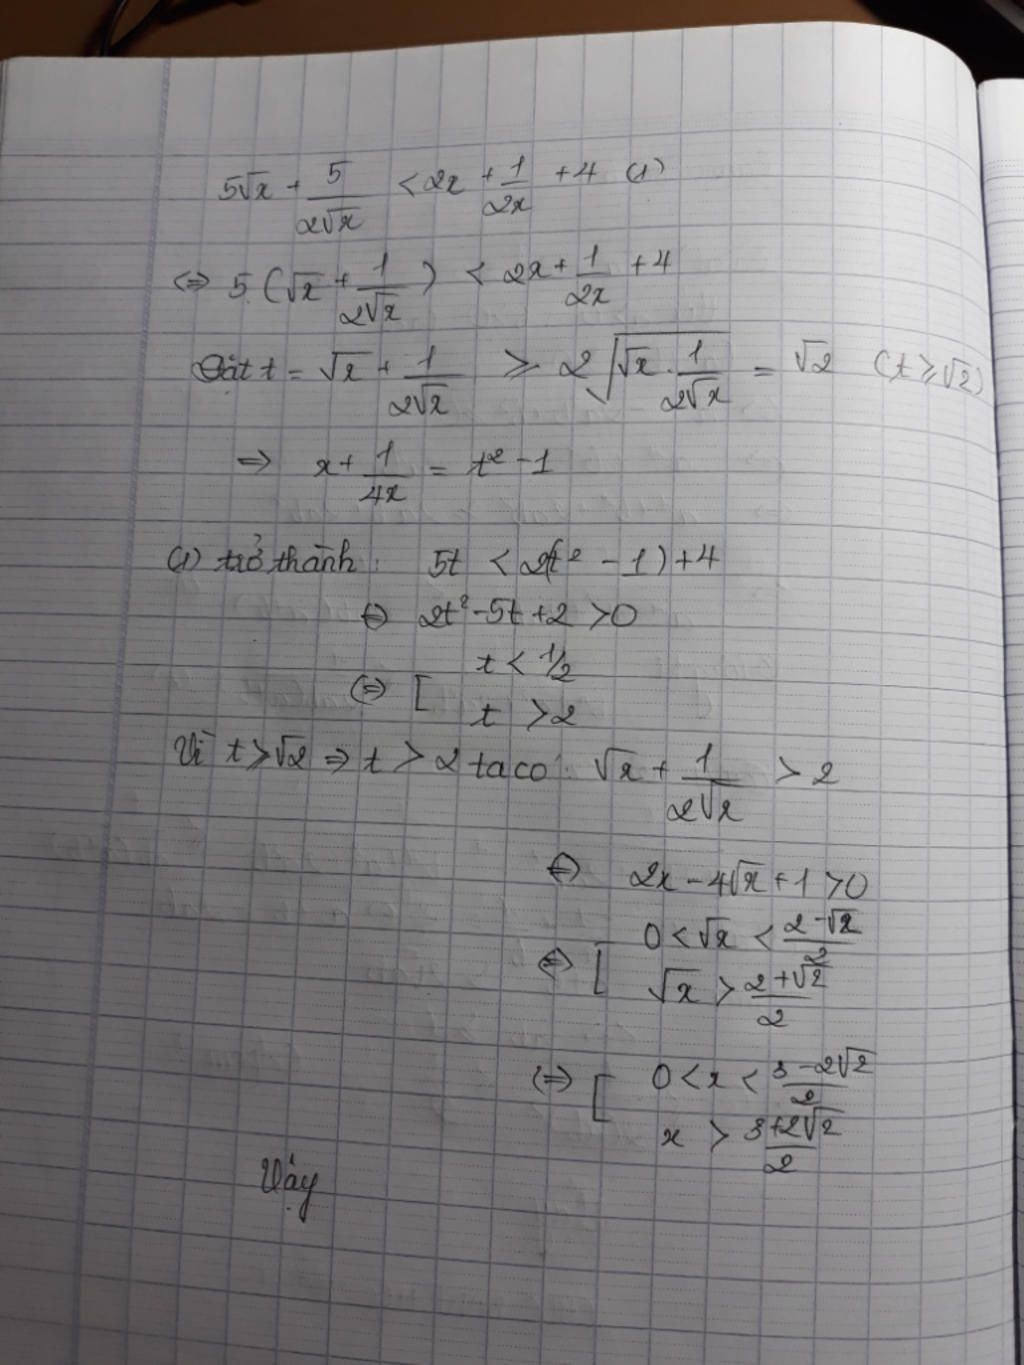 5√x + 5/(2√x) < 2x + 1/(2x) + 4 (1)
⇔ 5.(√x + 1/(2√x)) < 2x + 1/(2x) + 4
Đặt t = √x + 1/(2√x) ≥ 2√(√x . 1/(2√x)) = √2 (t ≥ √2)
⇒ x + 1/(4x) = t² - 1
(1) trở thành : 5t < 2(t² - 1) + 4
⇔ 2t² - 5t + 2 > 0
⇔ [ t < 1/2
t > 2
Vì t ≥ √2 ⇒ t > 2 ta có : √x + 1/(2√x) > 2
⇔ 2x - 4√x + 1 > 0
⇔ [ 0 < √x < (2 - √2)/2
√x > (2 + √2)/2
⇔ [ 0 < x < (3 - 2√2)/2
x > (3 + 2√2)/2
Vậy